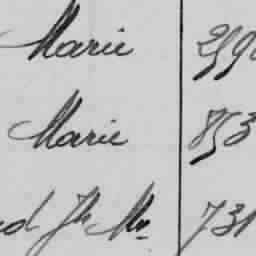 Marie 259
Marie 853
d Jh Mie 731